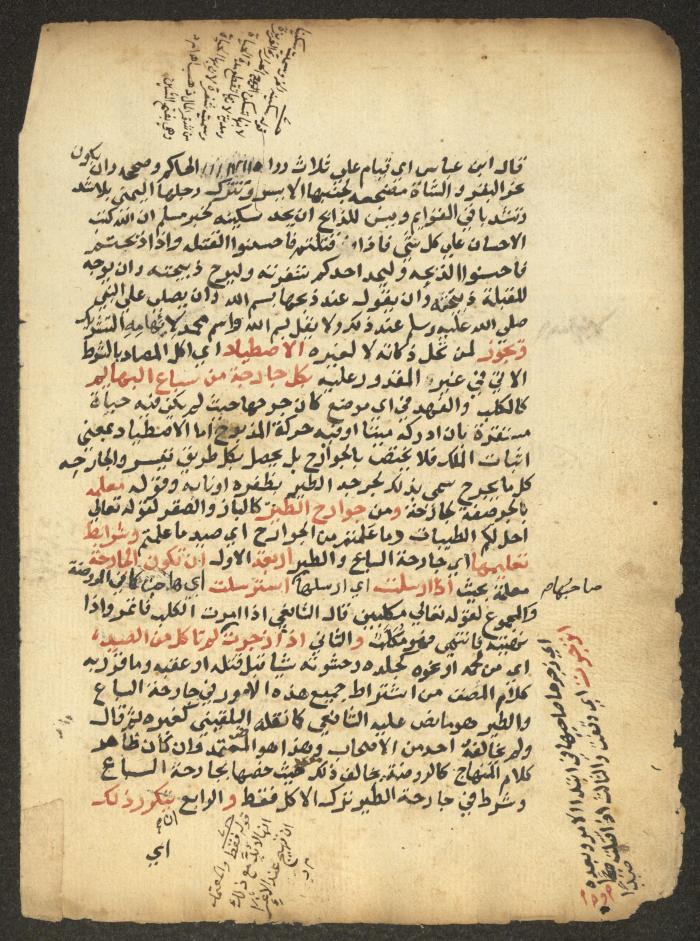 قال ابن عباس اي قيام على ثلاث رواه الحاكم وصححه وان يكون
نحر البقر والشاة مضجعه لجنبها الايسر وتترك رجلها اليمنى بلا شد
وتشد باقي القوايم ويسن للذابح ان يحد سكينه لخبر مسلم ان الله كتب
الاحسان على كل شي فاذا قتلتم فاحسنوا القتله واذا ذبحتم
فاحسنوا الذبحه وليحد احدكم شفرته وليرح ذبيحته وان يوجه
للقبلة ذبيحته وان يقول عند ذبحها بسم الله وان يصلي على النبي
صلى الله عليه وسلم عند ذلك ولا يقل بسم الله واسم محمد لايهامه التشريك
وتجوز لمن تحل ذكاته لا لغيره الاصطياد اي اكل المصاد بالشرط
الاتي في غير المقدور عليه بكل جارحة من سباع البهايم
كالكلب والفهد في اي موضع كان جرحها حيث لم يكن فيه حياة
مستقرة بان ادركه ميتا او فيه حركة المذبوح اما الاصطياد بمعنى
اثبات الملك فلا يختص بالجوارح بل يحصل بكل طريق تيسر والجارحه
كل ما يجرح سمي بذلك لجرحه الطير بظفره او نابه وقوله معلمه
بالجر صفة لجارحة ومن جوارح الطير كالباز والصقر لقوله تعالى
احل لكم الطيبات وما علمتم من الجوارح اي صيد ما علمتم وشرايط
تعليمها اي جارحة السباع والطير اربعة الاول ان تكون الجارحة
معلمة بحيث اذا ارسلت اي ارسلها استرسلت اي هاجت كما في الروضة
صاحبها
والمجموع لقوله تعالى مكلبين قال الشافعي اذا امرت الكلب فائتمر واذا
نهيته فانتهى فهو مكلب والثاني اذا زجرت لم تاكل من الصيد
اي من لحمه او نحوه كجلده وحشوته شيا قبل قتله او عقبه وما قرر به
كلام المصنف من اشتراط جميع هذه الامور في جارحة السباع
والطير هو ما نص عليه الشافعي كما نقله البلقيني كغيره ثم قال
ولم يخالفه احد من الاصحاب وهذا هو المعتمد وان كان ظاهر
كلام المنهاج كالروضة يخالف ذلك حيث خصها بجارحة السباع
وشرط في جارحة الطير ترك الاكل فقط والرابع ان يتكرر ذلك
اي
ازجرت اي وقفت والثالث اذا
اي زجرها صاحبها في ابتداء الامر وبعده